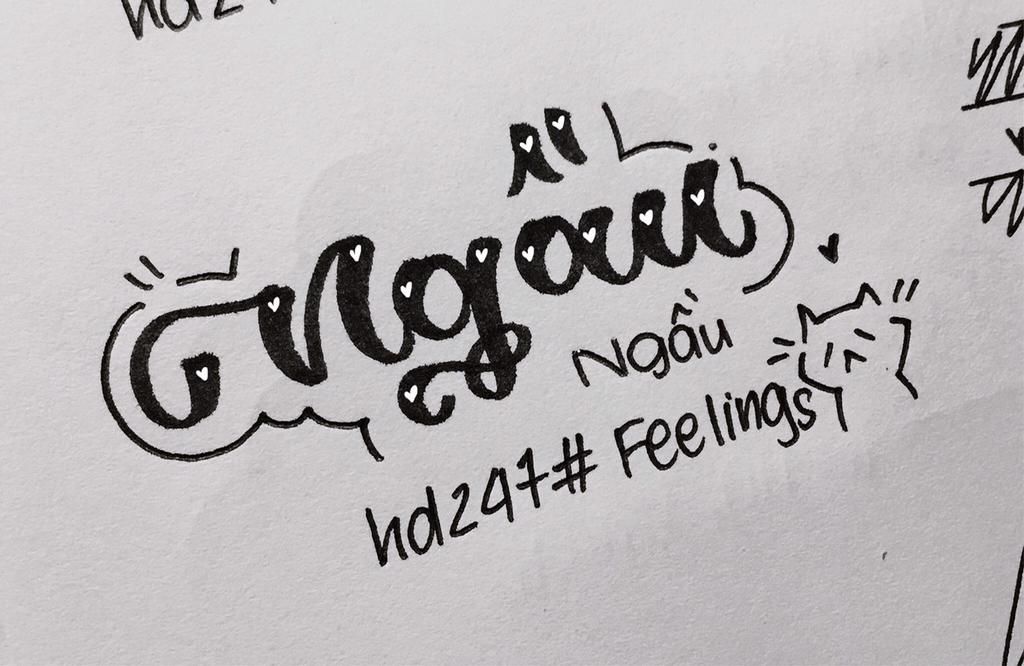 hd24
Ngầu
Ngầu
hd247# Feelings